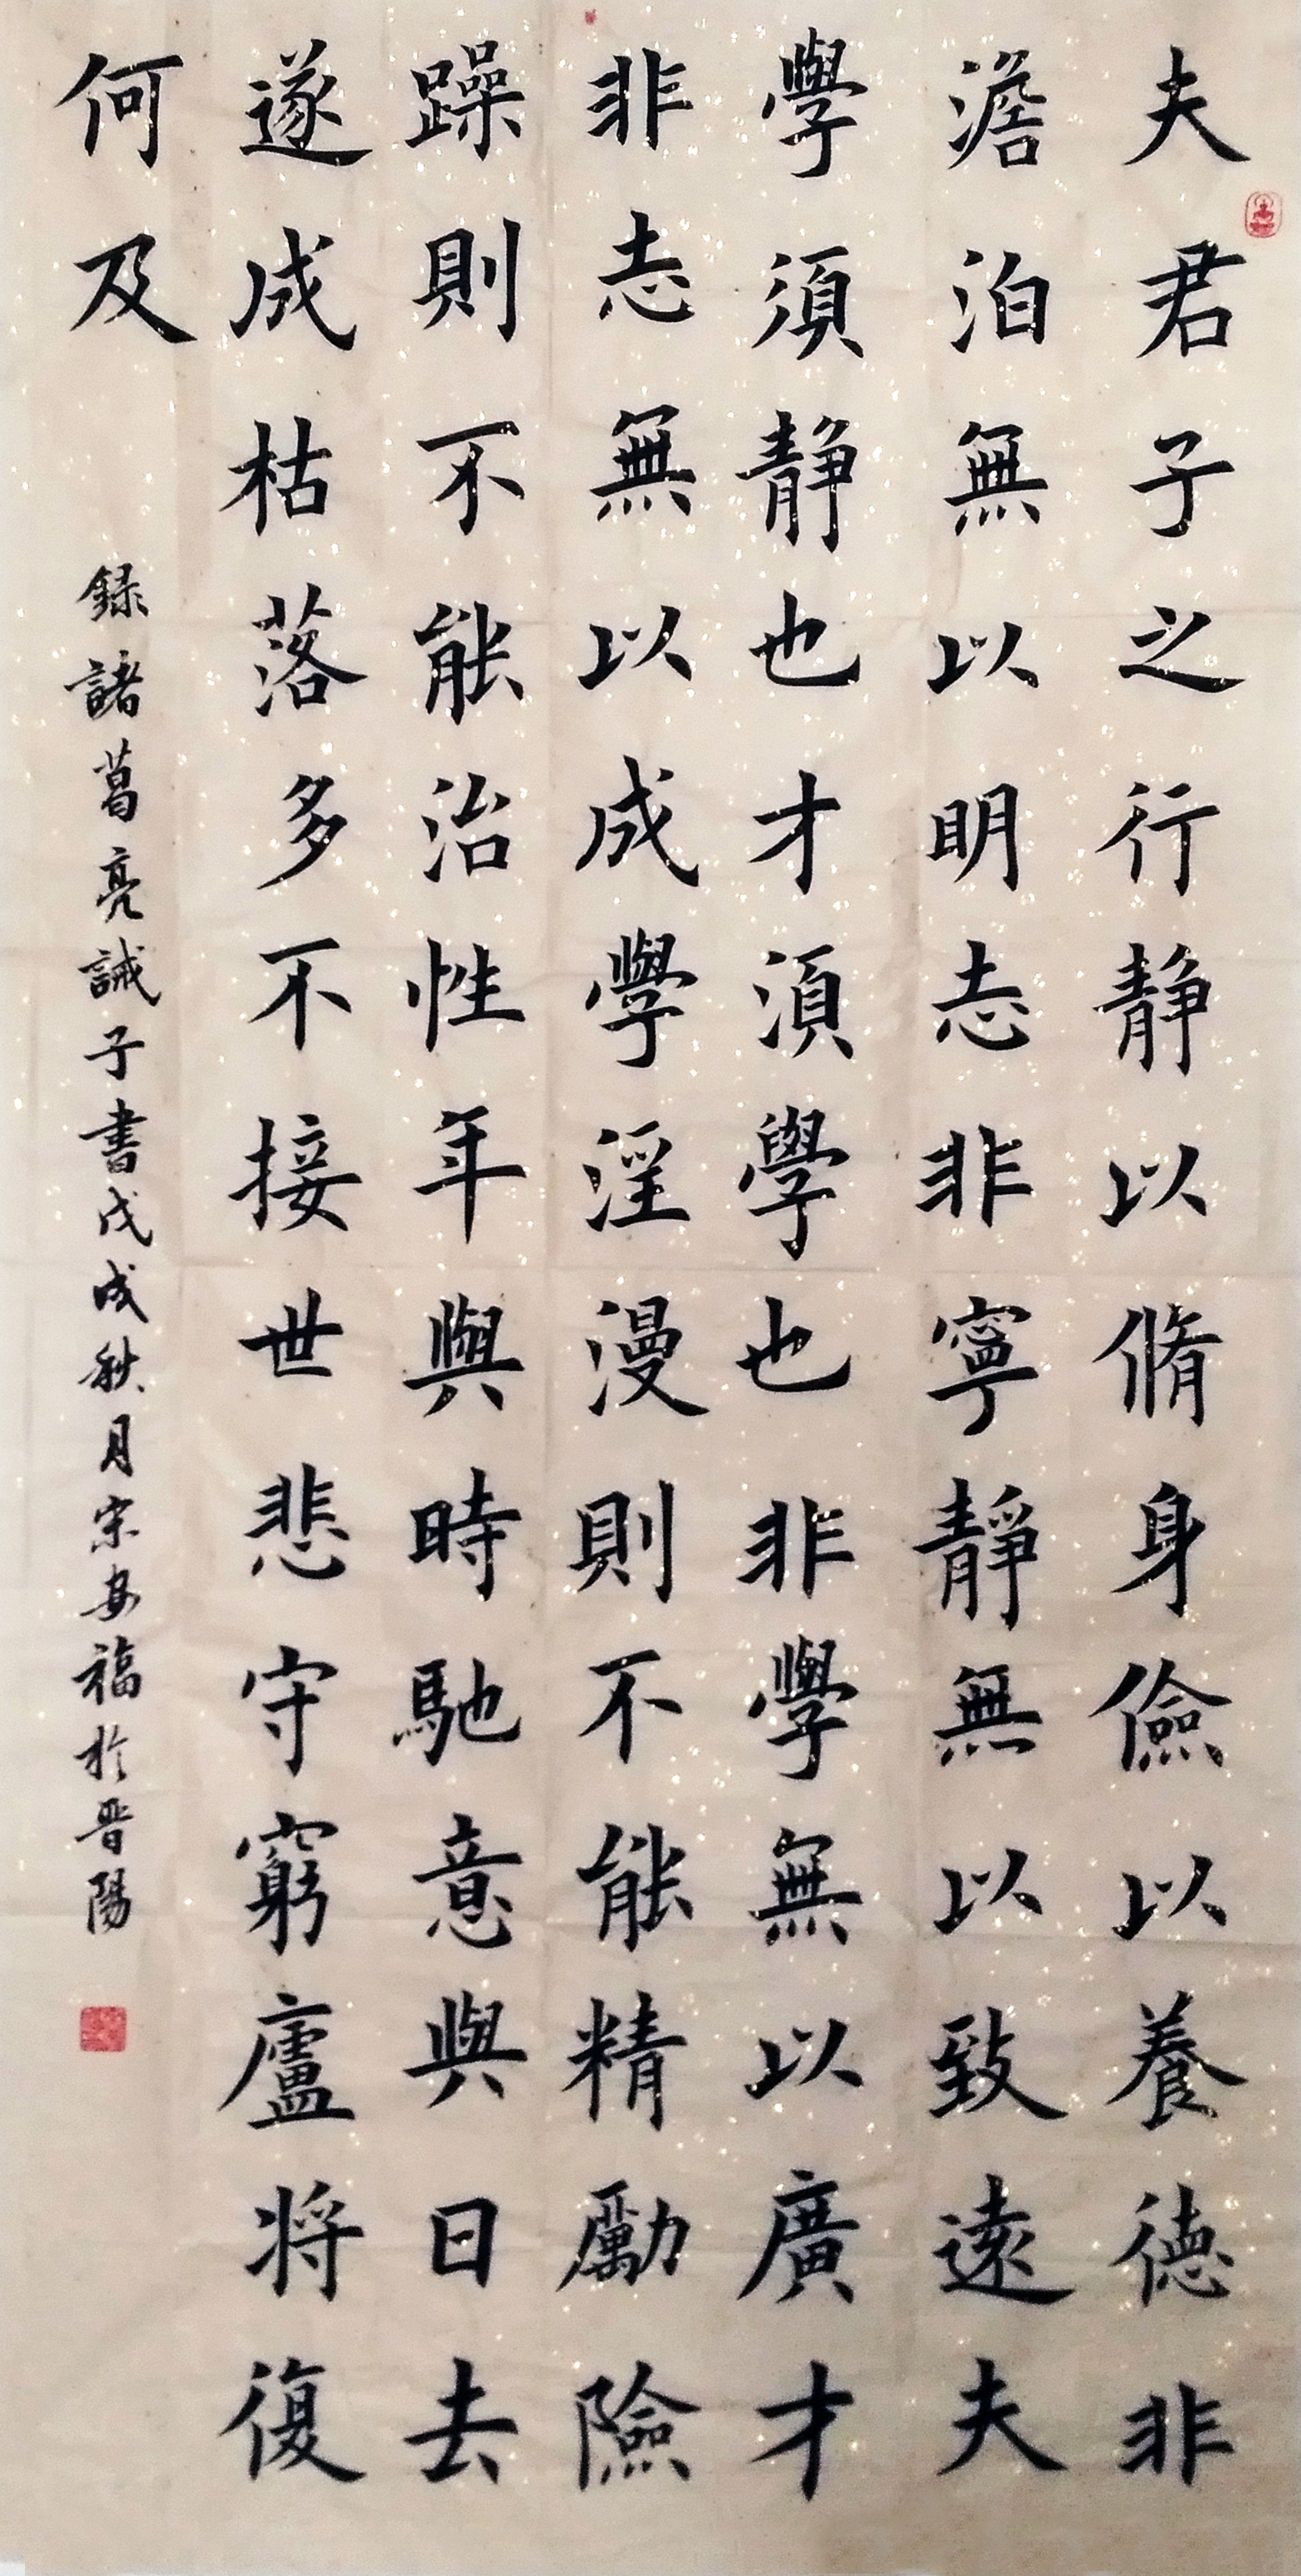 夫君子之行静以脩身儉以養德非
澹泊無以明志非寧靜無以致遠夫
學須静也才須學也非學無以廣才
非志無以成學淫漫則不能精勵險
躁則不能治性年與時馳意與日去
遂成枯落多不接世悲守窮廬将復
何及
録諸葛亮誡子書戊戌秋月宗安福於晋陽